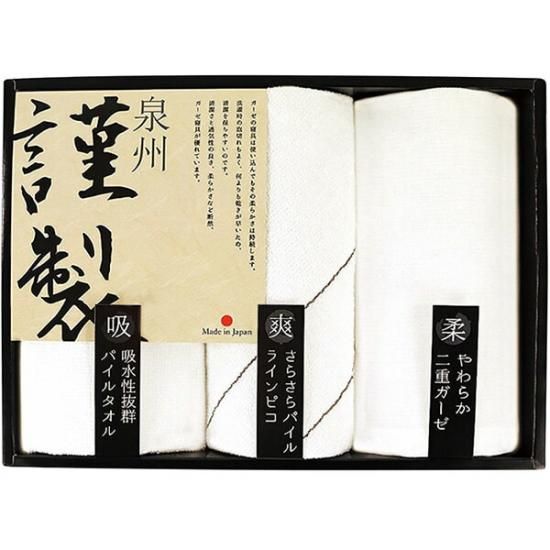 泉州
謹製
ガーゼの寝具は使い込んでもその柔らかさは持続します。
洗濯時の糸切れもよく、何よりも乾きが早いため、
清潔を保ちやすいのです。
清潔さと通気性の良さ、柔らかさなど断然、
ガーゼ寝具が優れています。
Made in Japan
吸
吸水性抜群
パイルタオル
爽
さらさらパイル
ラインピコ
柔
やわらか
二重ガーゼ